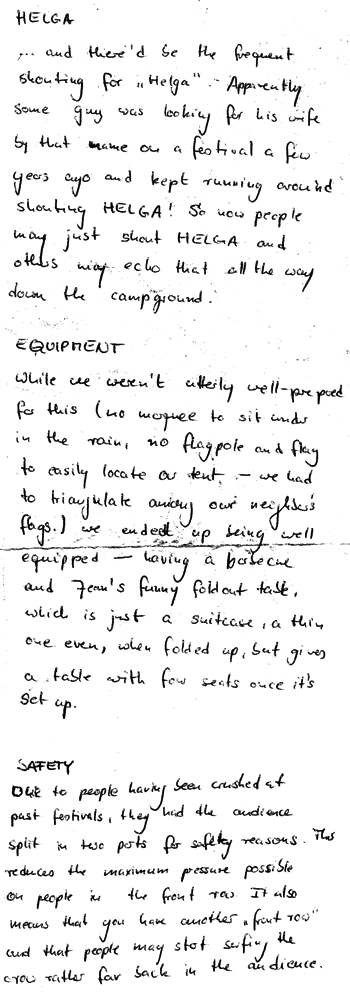 HELGA
... and there'd be the frequent
shouting for „Helga". Apparently
some guy was looking for his wife
by that name on a festival a few
years ago and kept running around
shouting HELGA! So now people
may just shout HELGA and
others may echo that all the way
down the campground.
EQUIPMENT
While we weren't utterly well-prepared
for this (no marquee to sit under
in the rain, no flagpole and flag
to easily locate our tent – we had
to triangulate among our neighbor's
flags.) we ended up being well
equipped – having a barbecue
and Jean's funny foldout table,
which is just a suitcase, a thin
one even, when folded up, but gives
a table with four seats once it's
set up.
SAFETY
Due to people having been crushed at
past festivals, they had the audience
split in two parts for safety reasons. This
reduces the maximum pressure possible
on people in the front row. It also
means that you have another „front row"
and that people may start surfing the
crow rather far back in the audience.